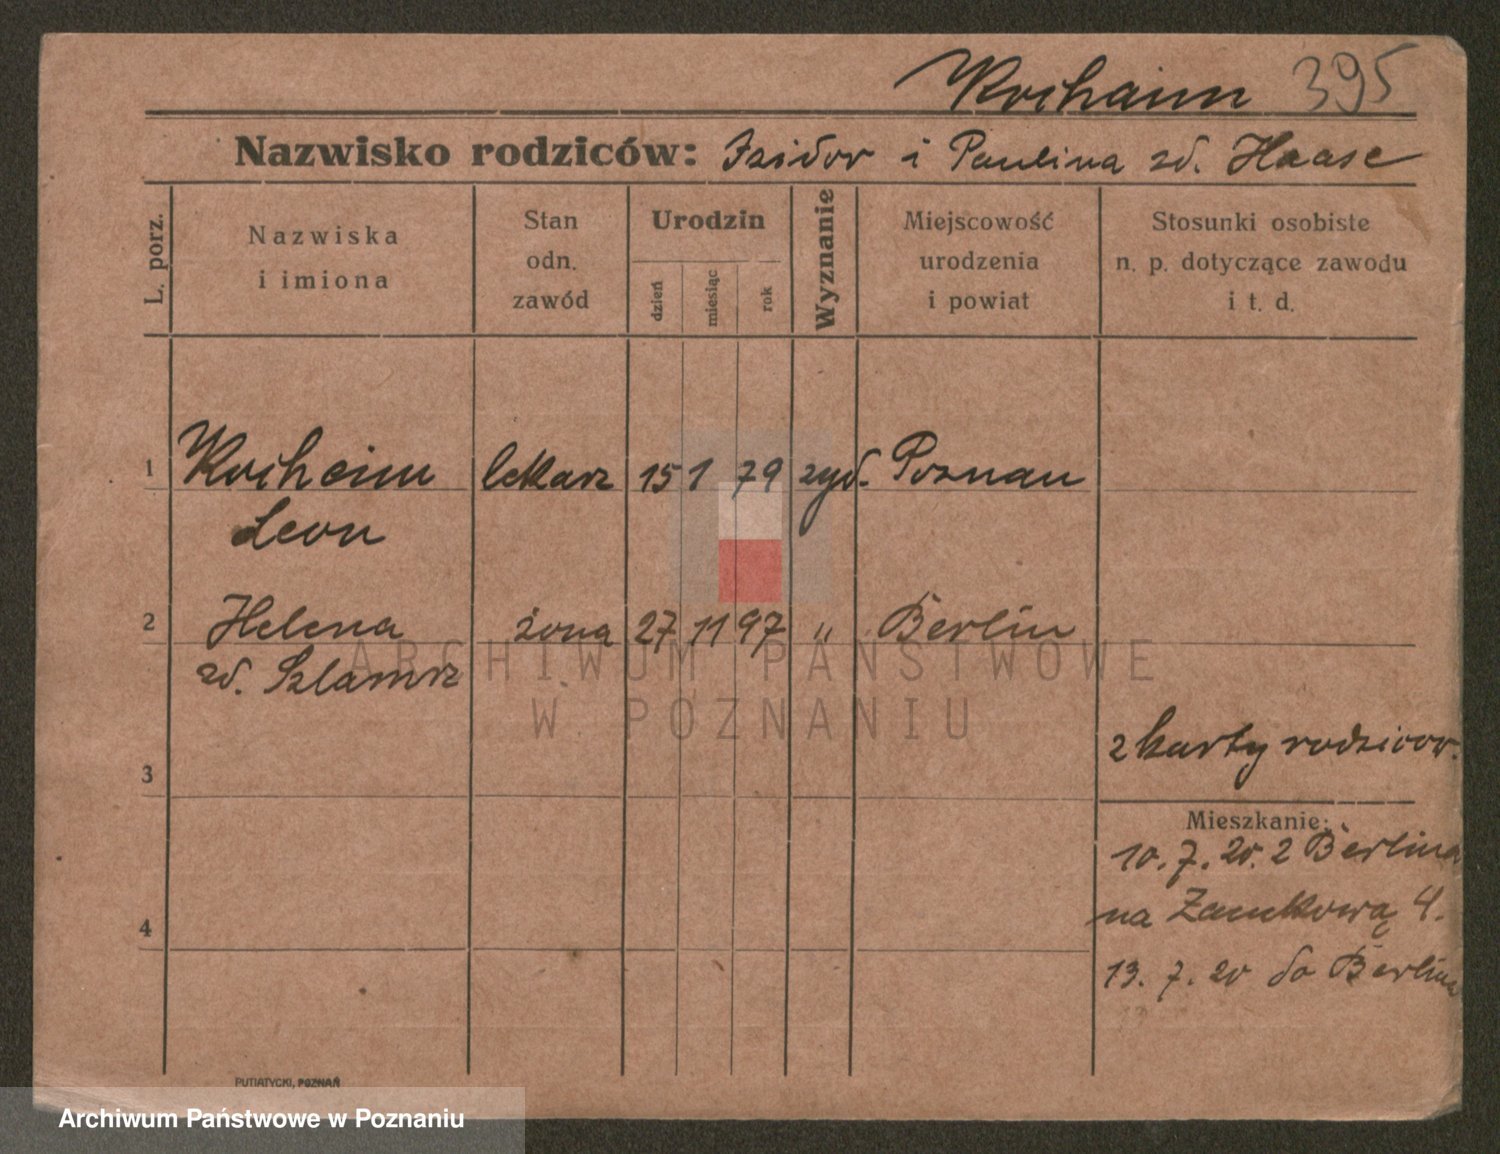 Krohaim 395
Nazwisko rodziców: Izidor i Paulina zd. Haase
L. porz.
Nazwiska
i imiona
Stan
odn.
zawód
Urodzin
dzień
miesiąc
rok
Wyznanie
Miejscowość
urodzenia
i powiat
Stosunki osobiste
n. p. dotyczące zawodu
i t. d.
1 lekarz 15 1 79 żyd. Poznau
Leon
2 Helena żona 27 11 97 " Berlin
zd.
ARCHIWUM PAŃSTWOWE
W POZNANIU
z karty rodzicow.
3
Mieszkanie:
10. 7. 20. z Berlina
na Zamkową 4.
4
13. 7. 20 do Berlina
PUTIATYCKI, POZNAŃ
Archiwum Państwowe w Poznaniu